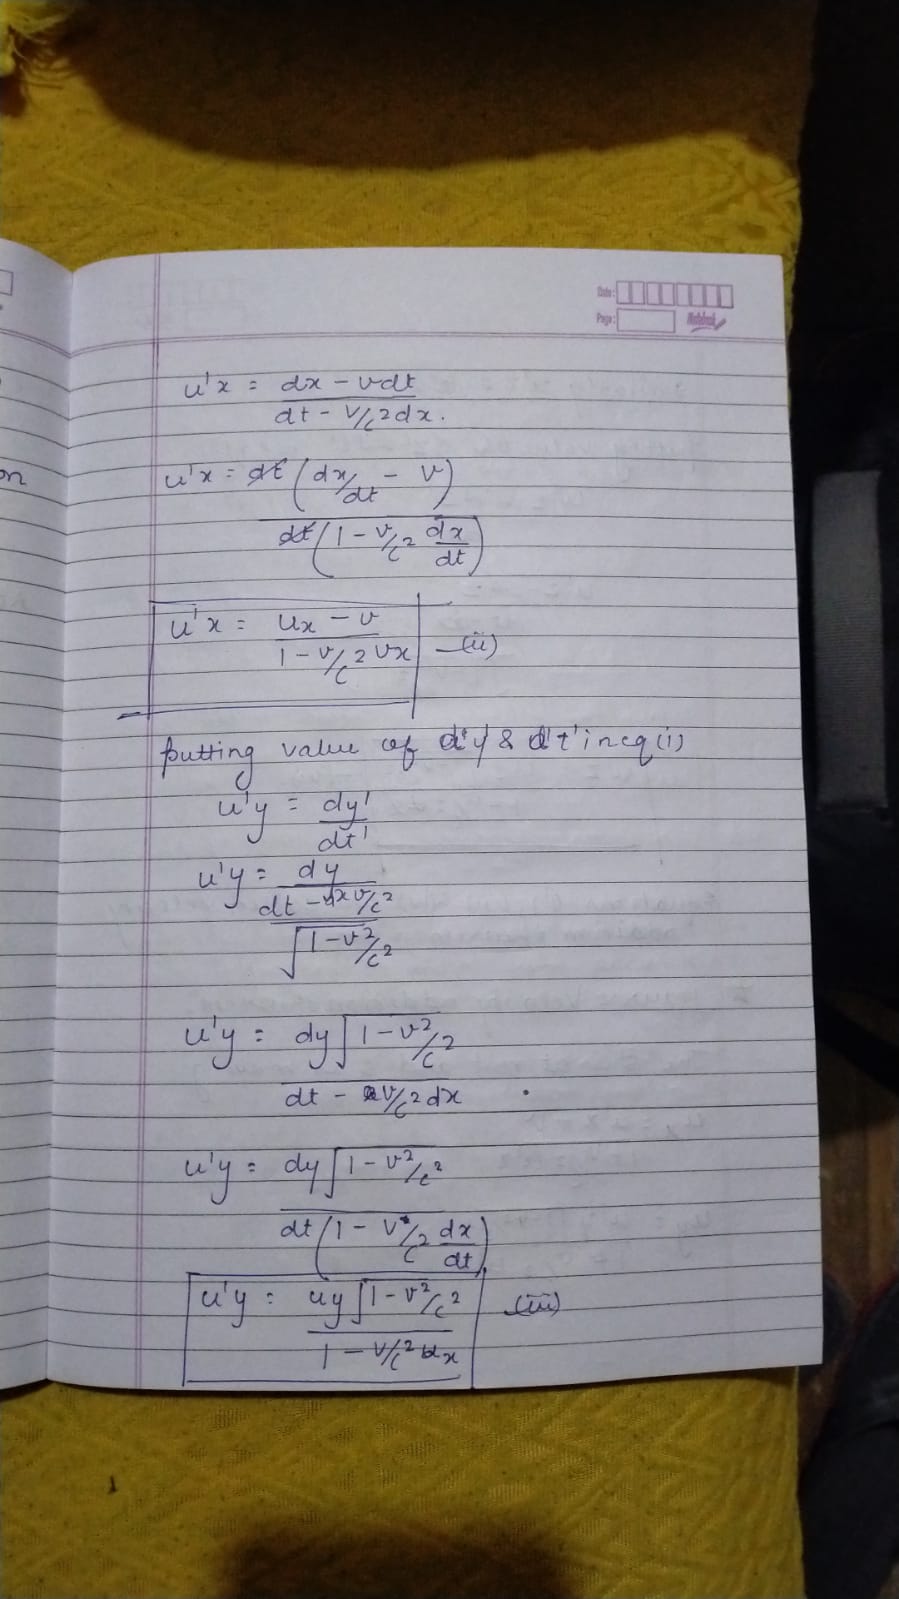 Date:
Page:
Notebook
on
u'x = dx - vdt / dt - v/c2 dx.
u'x = dt (dx/dt - v) / dt (1 - v/c2 dx/dt)
u'x = ux - v / 1 - v/c2 vx —(ii)
putting value of d'y' & d't' in eq (i)
u'y = dy' / dt'
u'y = dy / dt - dx v/c2 / √1 - v2/c2
u'y = dy √1 - v2/c2 / dt - v/c2 dx
u'y = dy √1 - v2/c2 / dt (1 - v/c2 dx/dt)
u'y = uy √1 - v2/c2 / 1 - v/c2 ux —(iii)